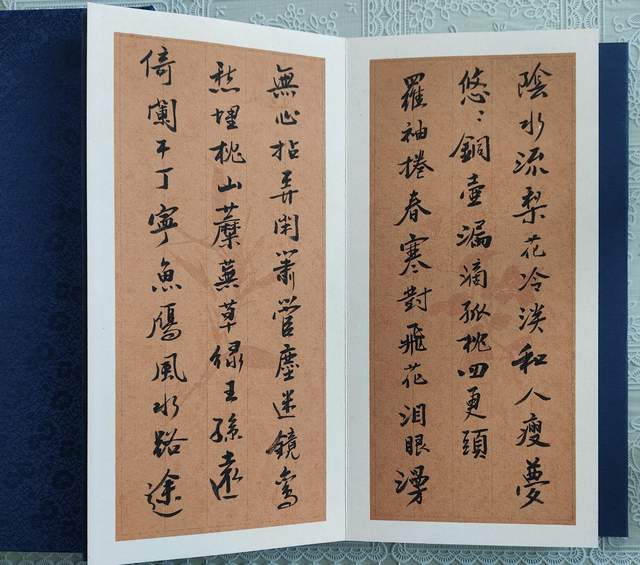 陰水流梨花冷淡和人瘦夢
悠〻銅壺漏滴孤枕四更頭
羅袖捲春寒對飛花泪眼漫
無心拈弄閑簫管塵迷鏡鸞
愁埋枕山蘼蕪草緑王孫遠
倚闌干丁寧魚鴈風水路途